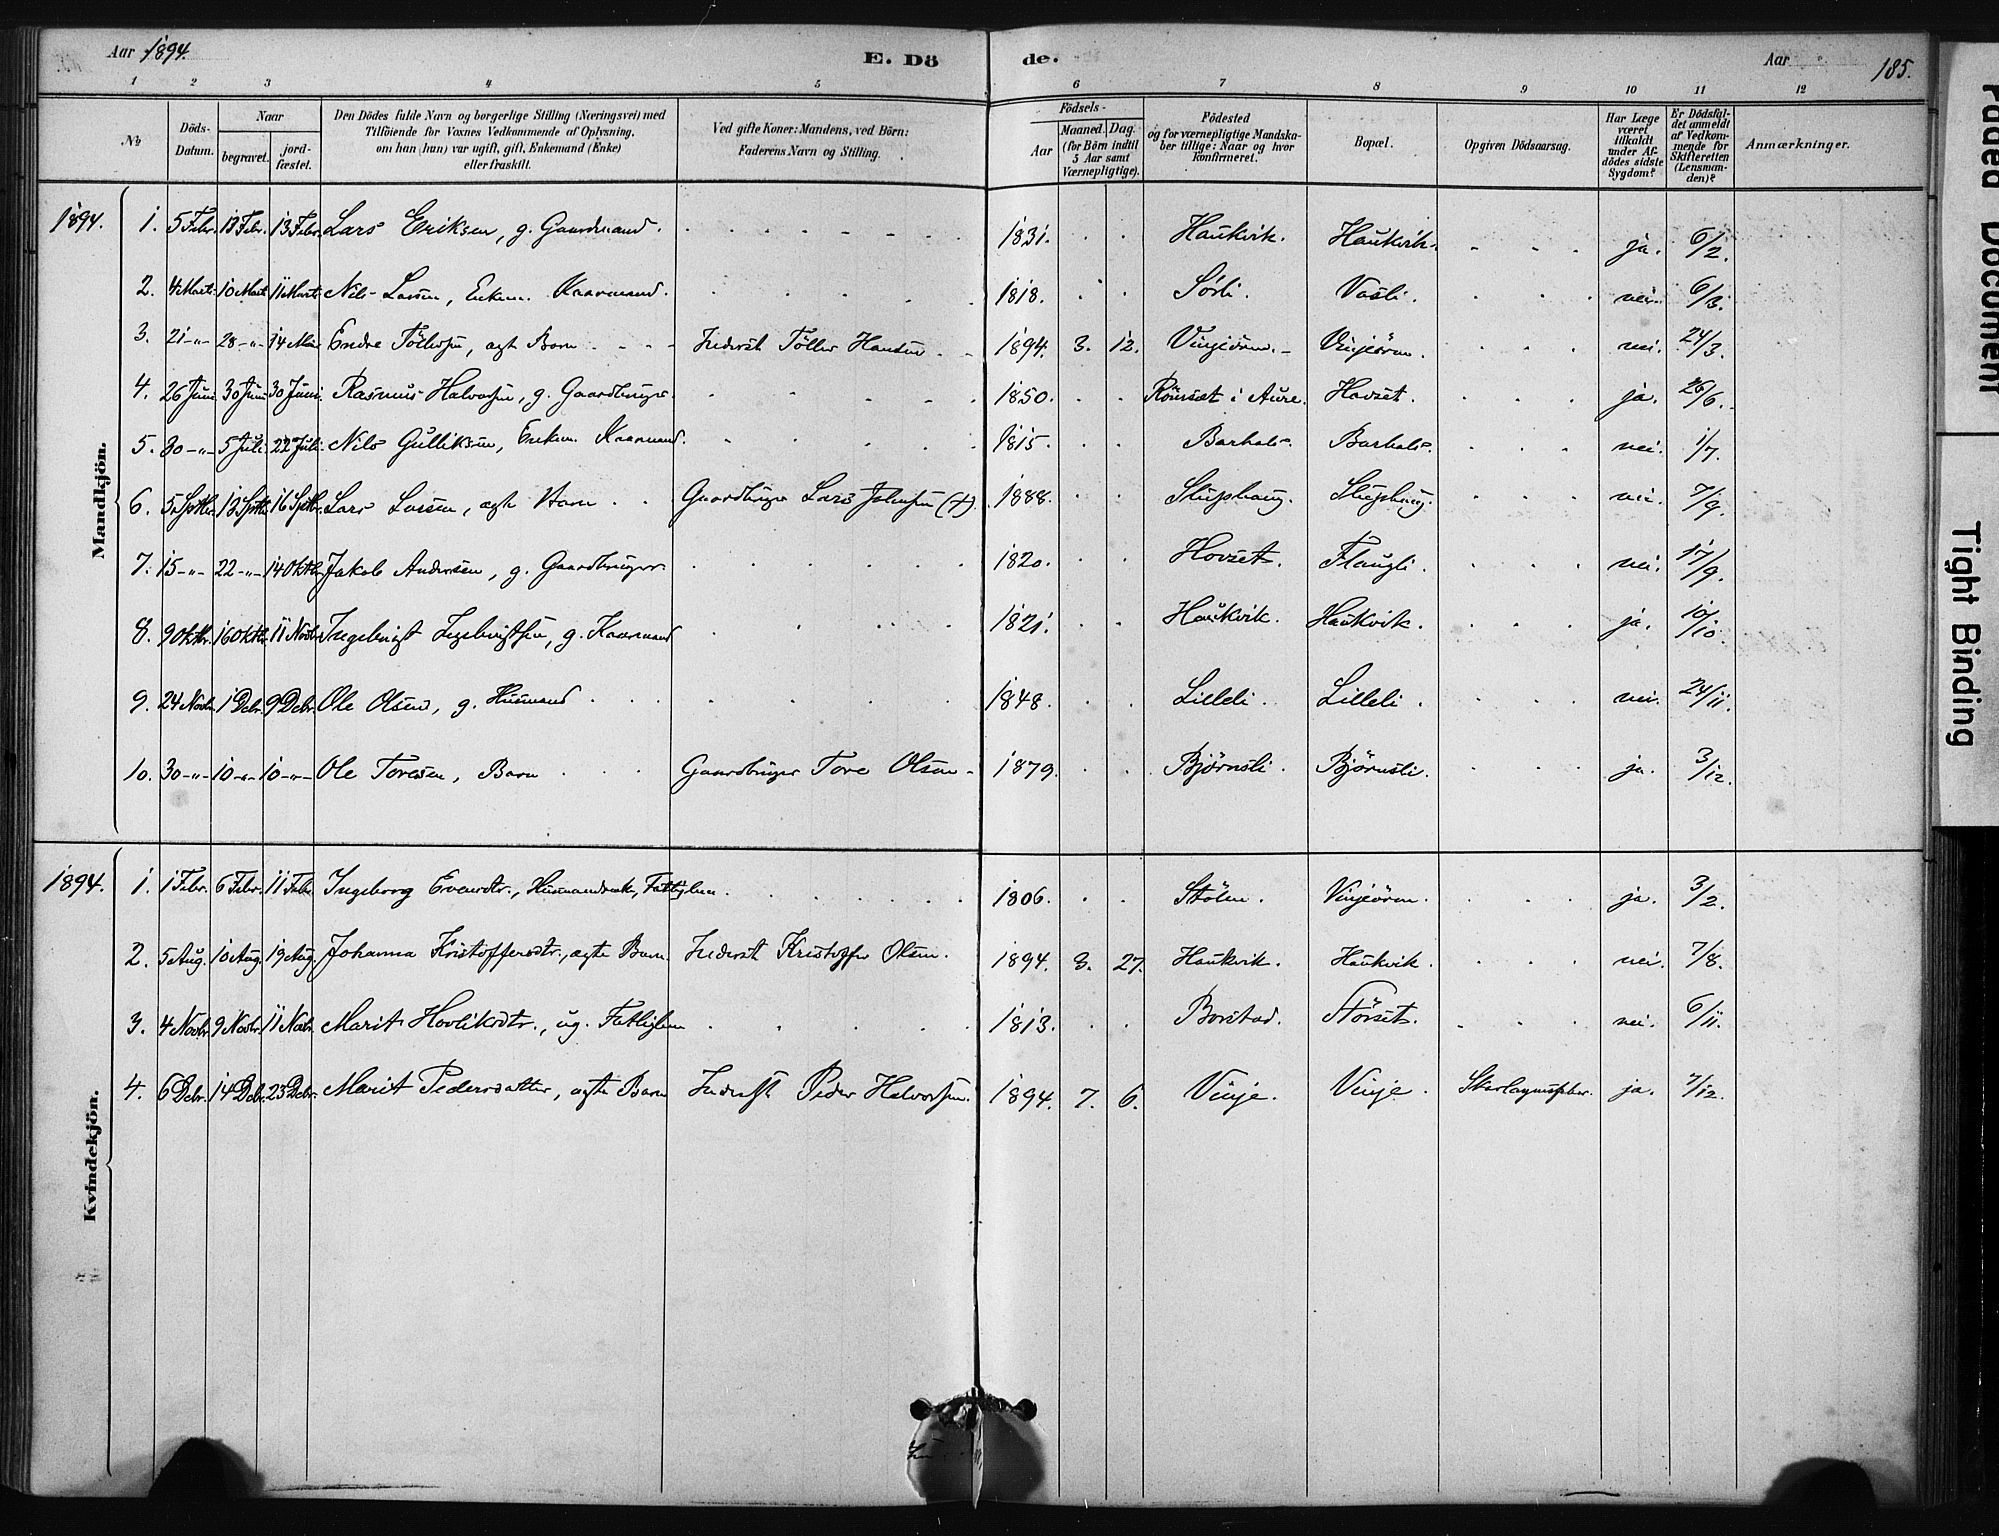 Aar 1894.
E. Dö
de.
Aar
185.
1 2 3 4 5 6 7 8 9 10 11 12
№
Döds-Datum.
Naar
begravet.
jord-fæstet.
Den Dödes fulde Navn og borgerlige Stilling (Næringsvei) med
Tilföiende for Voxnes Vedkommende af Oplysning,
om han (hun) var ugift, gift, Enkemand (Enke)
eller fraskilt.
Ved gifte Koner: Mandens, ved Börn:
Faderens Navn og Stilling.
Födsels-
Aar
Maaned. Dag.
(for Börn indtil
5 Aar samt
Værnepligtige).
Födested
og for værnepligtige Mandska-
ber tillige: Naar og hvor
konfirmeret.
Bopæl.
Opgiven Dödsaarsag.
Har Læge
været
tilkaldt
under Af-
dödes sidste
Sygdom?
Er Dödsfal-
det anmeldt
af Vedkom-
mende for
Skifteretten
(Lensman-
den)?
Anmærkninger.
Mandkjön.
1894. 1. 5 Febr. 13 Febr. 13 Febr. Lars Eriksen, g. Gaardmand. 1831. Haukvik. Haukvik. ja. 6/2.
2. 4 Marts. 10 Marts 11 Marts Nils Larsen, Enkem. Kaarmand. 1818. Sørli. Vasli. nei. 6/3.
3. 21 -"- 28 -"- 14 Mai Endre Töllefsen, ægt Barn Inderst Töllef Hansen 1894. 3. 12. Vinjeören. Vinjeören. nei. 24/3.
4. 26 Juni 30 Juni 30 Juni. Rasmus Halvorsen, g. Gaardbruger. 1850. Römsæt i Aure. Hovset. ja. 26/6.
5. 30 -"- 5 Juli. 22 Juli. Nils Gulliksen, Enkem. Kaarmand. 1815. Barhals. Barhals. nei. 1/7.
6. 5 Septbr. 13 Septbr. 16 Septbr. Lars Larsen, ægt Barn Gaardbruger Lars Johnsen (+). 1888. Sluphaug. Sluphaug. nei. 7/9.
7. 15 -"- 22 -"- 14 Oktbr. Jakob Andersen, g. Gaardbruger 1820. Hovset. Flaugli. nei. 17/9.
8. 9 Oktbr. 16 Oktbr. 11 Novbr. Ingebrigt Ingebrigtsen, g. Kaarmand 1821. Haukvik. Haukvik. ja. 10/10.
9. 24 Novbr. 1 Debr. 9 Debr. Ole Olsen, g. Husmand 1848. Lilleli. Lilleli. nei. 24/11.
10. 30 -"- 10 -"- 10 -"- Ole Toresen, Barn Gaardbruger Tore Olsen 1879. Björnsli. Björnsli. ja. 3/12.
Kvindekjön.
1894. 1. 1 Febr. 6 Febr. 11 Febr. Ingeborg Evensdtr., Husmandsenk, Fattiglem. 1806. Stölen. Vinjeören. ja. 3/2.
2. 5 Aug. 10 Aug. 19 Aug. Johanna Kristoffersdtr., ægte Barn Inderst Kristoffer Olsen. 1894. 3. 27. Haukvik. Haukvik. nei. 7/8.
3. 4 Novbr. 9 Novbr. 11 Novbr. Marit Hovliksdtr., ug. Fattiglem 1813. Borstad. Störset. nei. 6/11.
4. 6 Debr. 14 Debr. 23 Debr. Marit Pedersdatter, ægte Barn Inderst Peder Halvorsen. 1894. 7. 6. Vinje. Vinje. Skarlagensfeber. ja. 7/12.
Faded Document
Tight Binding